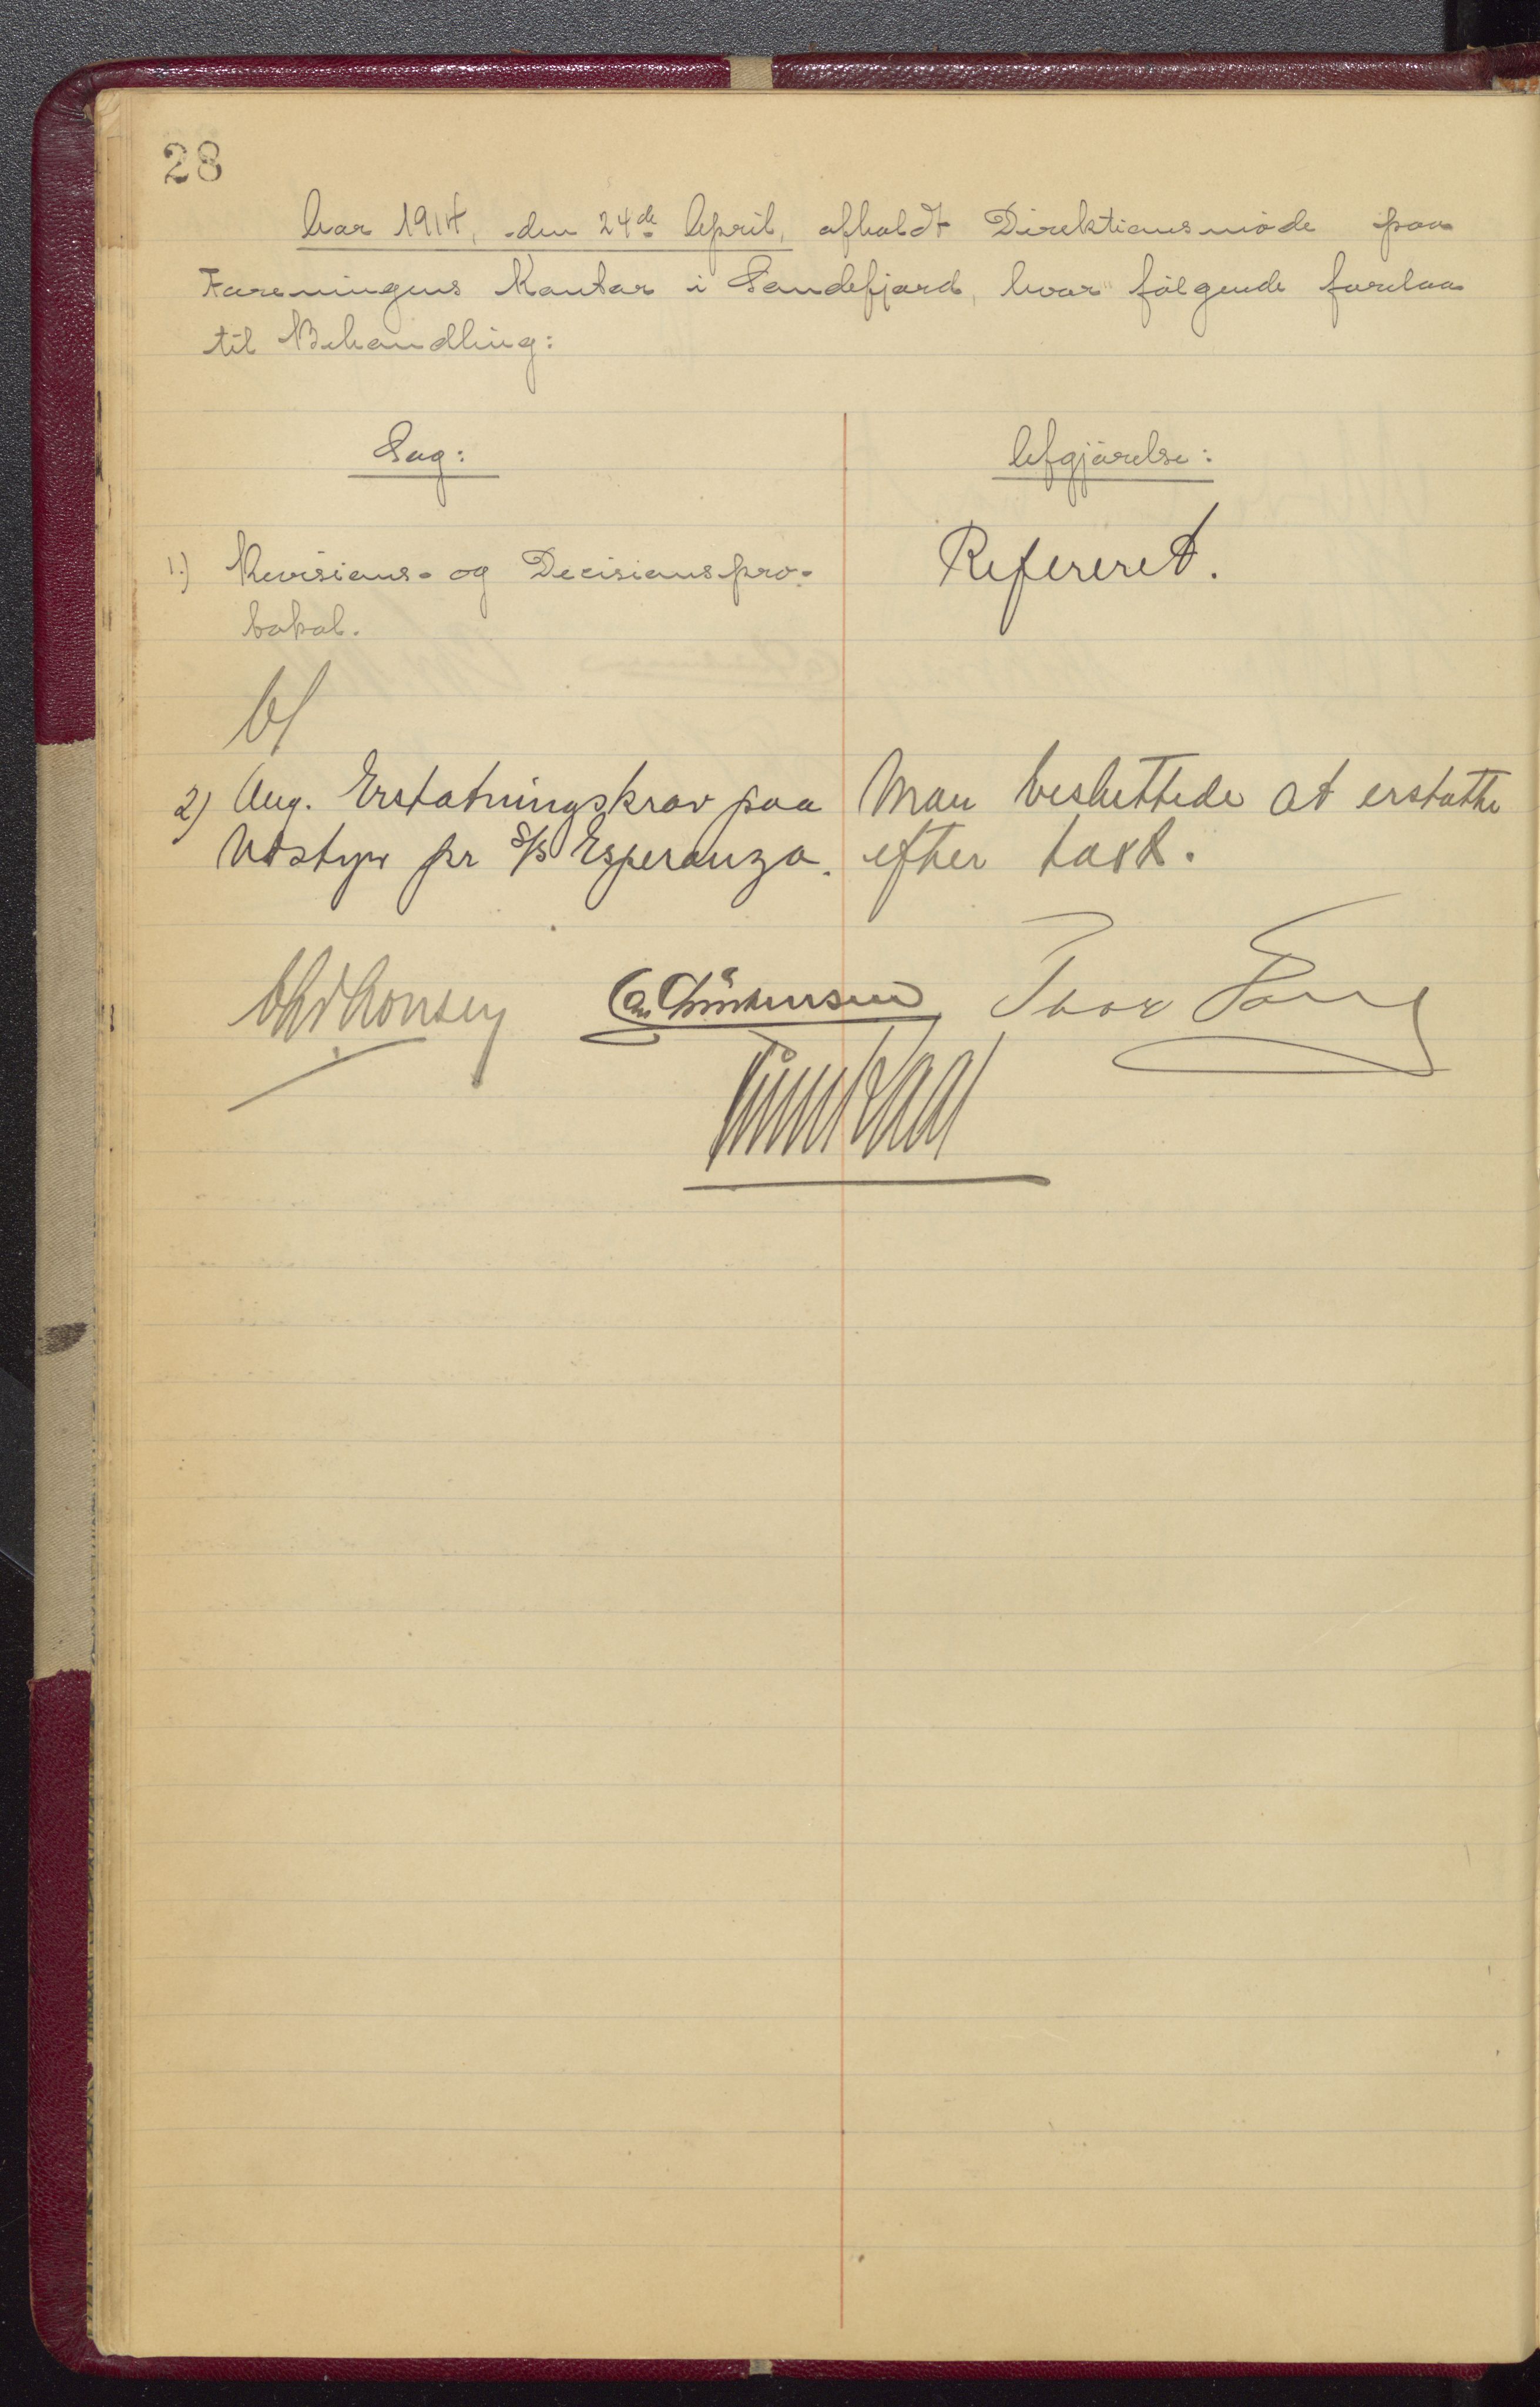 28
Aar 1914, den 24de April, afholdt Direktionsmøde paa
Foreningens Kontor i Sandefjord, hvor følgende forelaa
til Behandling:
Sag:
Afgjørelse:
1.) Revisions- og Decisionspro-
tokol.
Refereret.
2) Ang. Erstatningskrav paa
Udstyr pr S/S Esperanza.
Man besluttede at erstatte
efter taxt.
Chr. Christensen
Thor Dahl